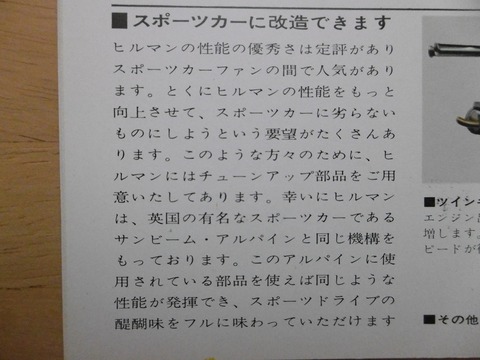 ■スポーツカーに改造できます
ヒルマンの性能の優秀さは定評があり
スポーツカーファンの間で人気があり
ます。とくにヒルマンの性能をもっと
向上させて、スポーツカーに劣らない
ものにしようという要望がたくさんあ
ります。このような方々のために、ヒ
ルマンにはチューンアップ部品をご用
意いたしてあります。幸いにヒルマン
は、英国の有名なスポーツカーである
サンビーム・アルパインと同じ機構を
もっております。このアルパインに使
用されている部品を使えば同じような
性能が発揮でき、スポーツドライブの
醍醐味をフルに味わっていただけます
■ツイン
エンジン
増します。
ピードが
■その他